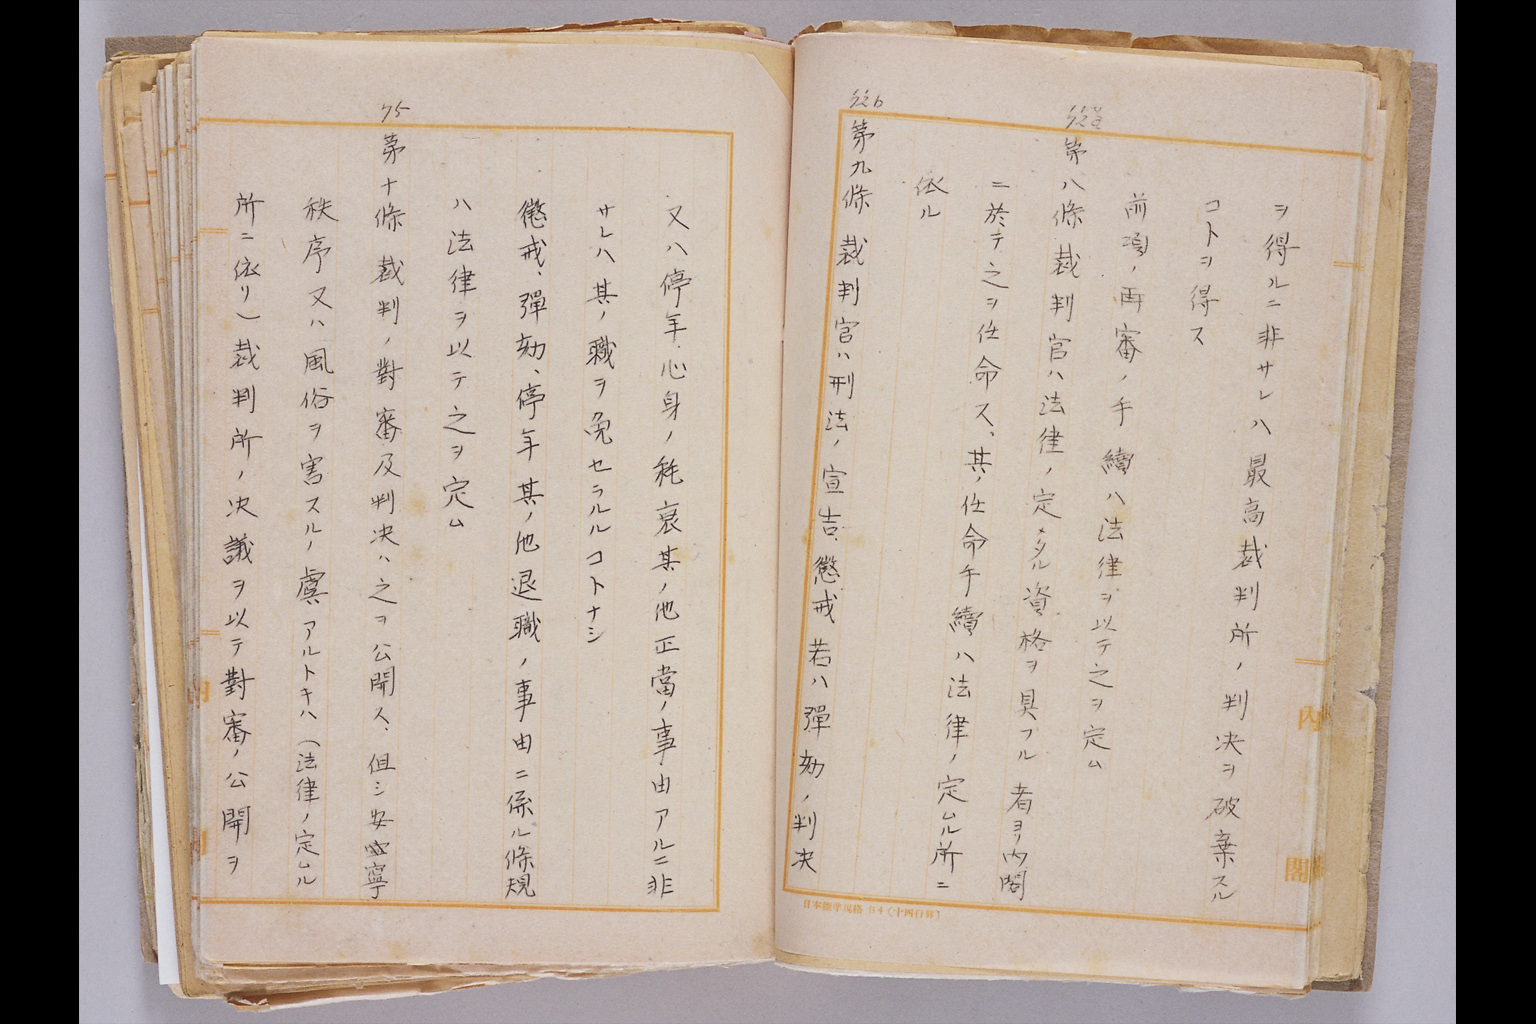 ヲ得ルニ非サレハ最高裁判所ノ判決ヲ破棄スル
コトヲ得ス
前項ノ再審ノ手續ハ法律ヲ以テ之ヲ定ム
第八條 裁判官ハ法律ノ定メタル資格ヲ具フル者ヨリ内閣
ニ於テ之ヲ任命ス、其ノ任命手續ハ法律ノ定ムル所ニ
依ル
926
第九條 裁判官ハ刑法ノ宣告、懲戒若ハ彈劾ノ判決
日本標準規格 B4(十四行罫)
内閣
又ハ停年、心身ノ耗衰其ノ他正當ノ事由アルニ非
サレハ其ノ職ヲ免セラルルコトナシ
懲戒、彈劾、停年其ノ他退職ノ事由ニ係ル條規
ハ法律ヲ以テ之ヲ定ム
75
第十條 裁判ノ對審及判決ハ之ヲ公開ス、但シ安寧
秩序又ハ風俗ヲ害スルノ虞アルトキハ(法律ノ定ムル
所ニ依リ)裁判所ノ決議ヲ以テ對審ノ公開ヲ